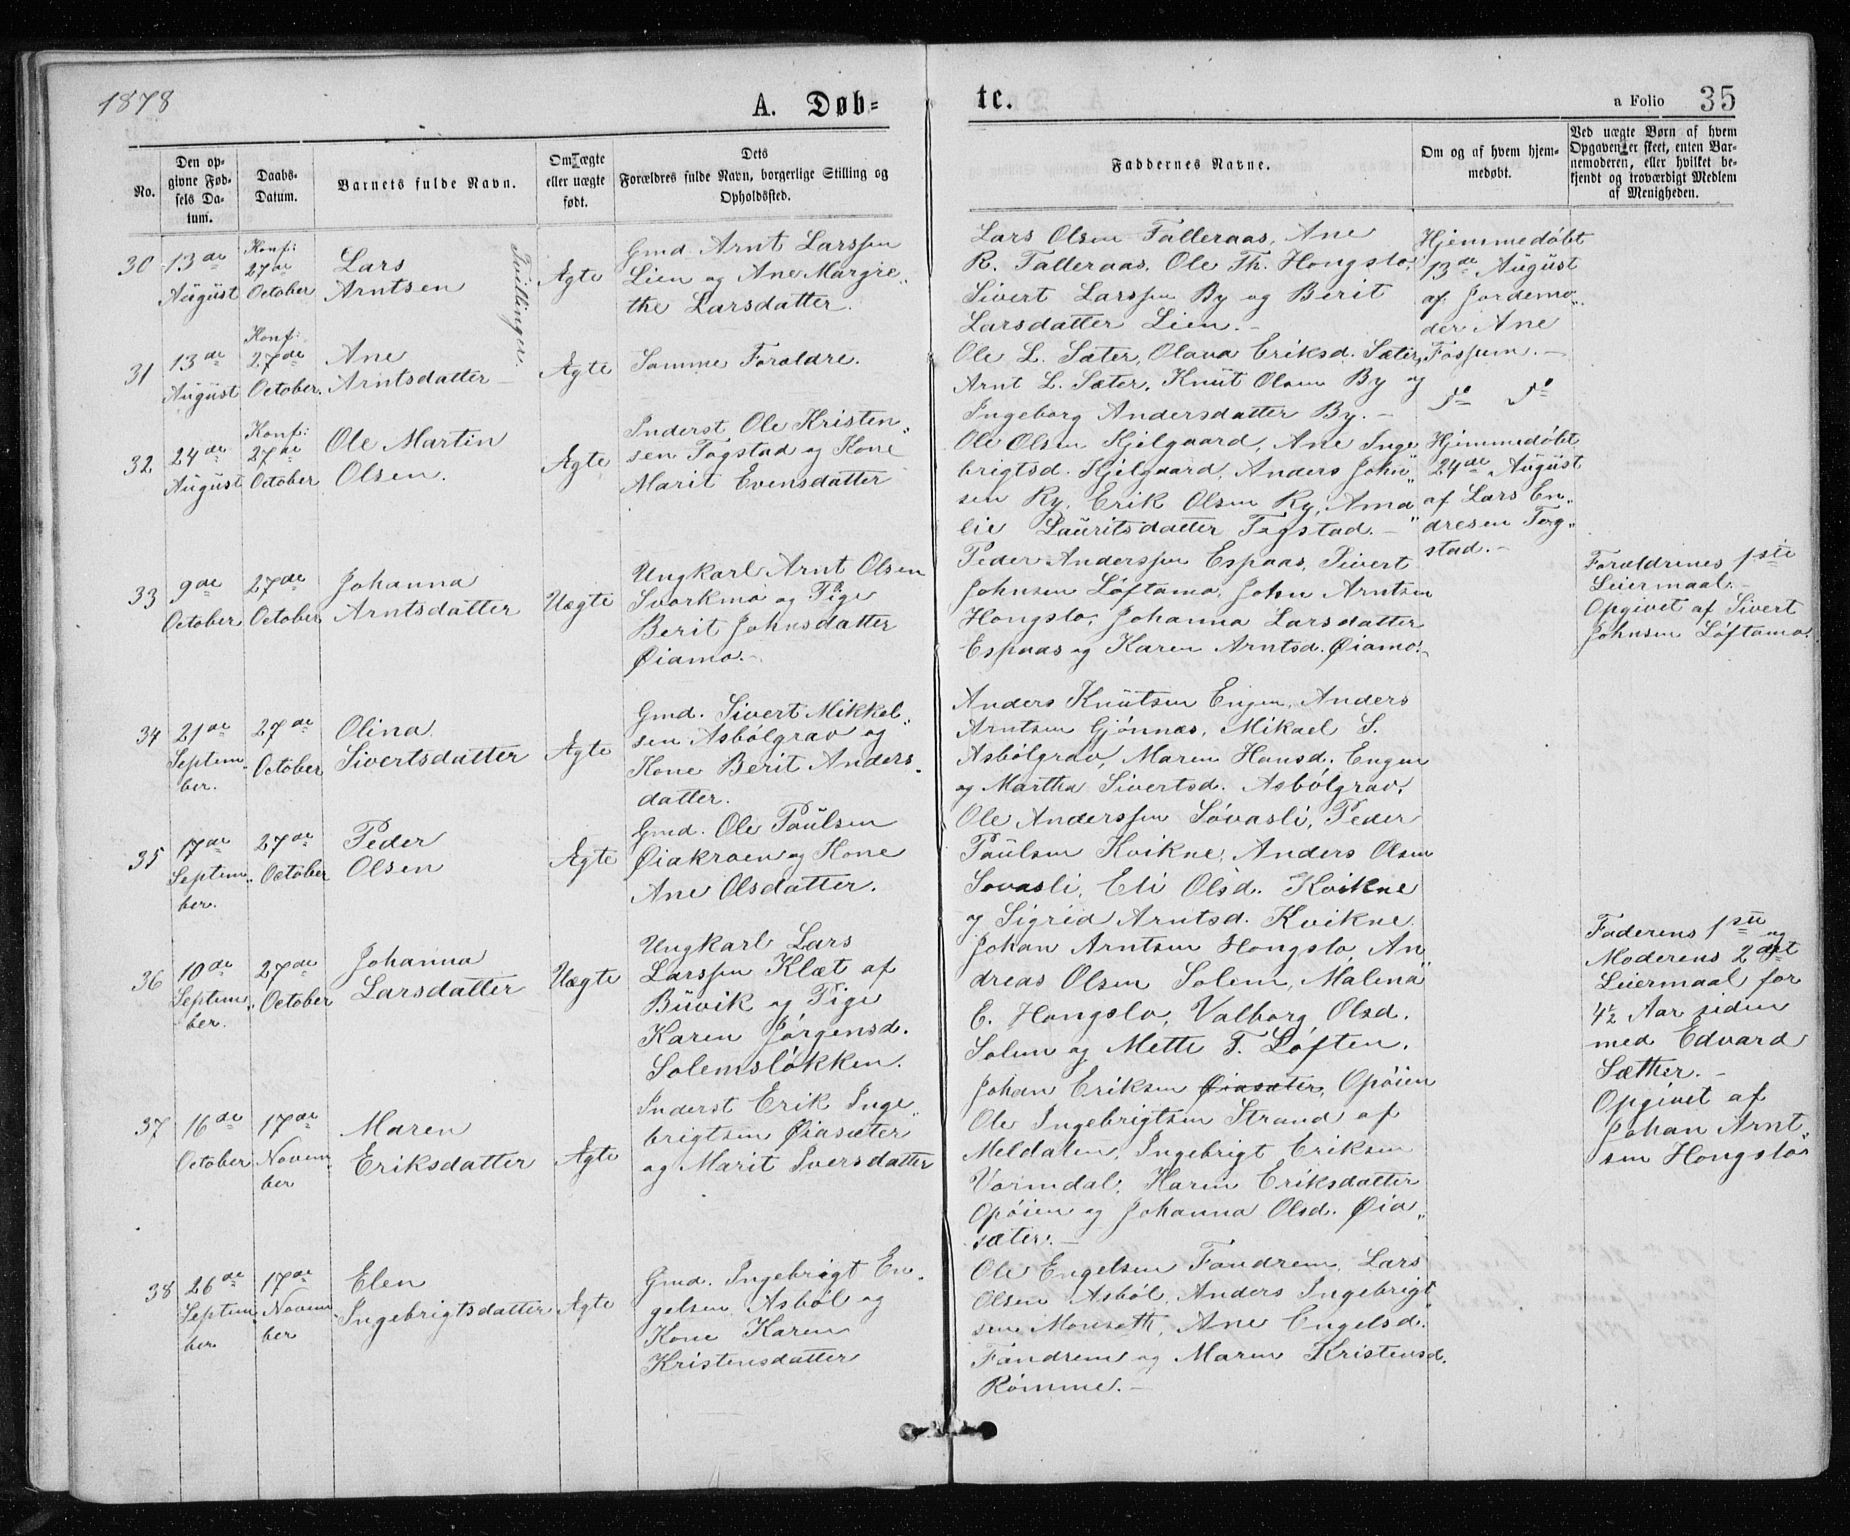 1878
A. Døb=
te.
a Folio 35
No.
Den op=
givne Fød=
sels Da=
tum.
Daabs=
Datum.
Barnets fulde Navn.
Om ægte
eller uægte
født.
Dets
Forældres fulde Navn, borgerlige Stilling og
Opholdssted.
Faddernes Navne.
Om og af hvem hjem=
medøbt.
Ved uægte Børn af hvem
Opgaven er skeet, enten Bar=
nemoderen, eller hvilket be=
kjendt og troværdigt Medlem
af Menigheden.
30
13de
August
Konf:
27de
October
Lars
Arntsen
Tvillinger.
Ægte
Gmd. Arnt Larssen
Lien og Ane Margre„
the Larsdatter.
Lars Olsen Talleraas, Ane
R. Talleraas, Ole Th. Hongslo,
Sivert Larssen By og Berit
Larsdatter Lien.-
Hjemmedøbt
13de August
af Jordemo„
der Ane
Fossum.-
31
13de
August
Konf:
27de
October.
Ane
Arntsdatter
Ægte
Samme Forældre.
Ole L. Sæter, Olava Eriksd. Sæter,
Arnt L. Sæter, Knut Olsen By og
Ingeborg Andersdatter By.-
do do
32
24de
August
Konf:
27de
October
Ole Martin
Olsen.
Ægte
Inderst Ole Kristen„
sen Togstad og Kone
Marit Evensdatter
Ole Olsen Kjelgaard, Ane Inge„
brigtsd. Kjelgaard, Anders John„
sen Ry, Erik Olsen Ry, Ama„
lie Lauritsdatter Togstad.-
Hjemmedøbt
24de August
af Lars En„
dresen Tog„
stad.-
33
9de
October
27de
October
Johanna
Arntsdatter
Uægte
Ungkarl Arnt Olsen
Svorkmo og Pige
Berit Johnsdatter
Øiamo.-
Peder Anderssen Espaas, Sivert
Johnsen Løftamo, John Arntsen
Hongslo, Johanna Larsdatter
Espaas og Karen Arntsd. Øiamo.-
Forældrenes 1ste
Leiermaal.-
Opgivet af Sivert
Johnsen Løftamo.
34
21de
Septem„
ber.
27de
October
Olina
Sivertsdatter
Ægte
Gmd. Sivert Mikkel„
sen Asbølgrav og
Kone Berit Anders„
datter.
Anders Knutsen Engen, Anders
Arntsen Gjønnes, Mikael S.
Asbølgrav, Maren Hansd. Engen
og Martha Sivertsd. Asbølgrav.
35
17de
Septem„
ber.
27de
October
Peder
Olsen
Ægte
Gmd. Ole Paulsen
Øiakroen og Kone
Ane Olsdatter.
Ole Anderssen Søvasli, Peder
Paulsen Kvikne, Anders Olsen
Sovasli, Eli Olsd. Kvikne
og Sigrid Arntsd. Kvikne
36
10de
Septem„
ber.
27de
October
Johanna
Larsdatter
Uægte
Ungkarl Lars
Larssen Klæt af
Buvik og Pige
Karen Jørgensd.
Solemsløkken.
Johan Arntsen Hongslo, An„
dreas Olsen Solem, Malena
E. Hongslo, Valborg Olsd.
Solem og Mette T. Løften.
Faderens 1ste og
Moderens 2det
Leiermaal for
4½ Aar siden
med Edvard
Sæther.-
Opgivet af
Johan Arnt„
sen Hongslo
37
16de
October
17de
Novem„
ber
Maren
Eriksdatter
Ægte
Inderst Erik Inge„
brigtsen Øiasæter
og Marit Iversdatter
Johan Eriksen Øiasæter, Opøien
Ole Ingebrigtsen Strand af
Meldalen, Ingebrigt Eriksen
Vormdal, Karen Eriksdatter
Opøien og Johanna Olsd. Øia„
sæter.-
38
26de
Septem„
ber
17de
Novem„
ber
Elen
Ingebrigtsdatter
Ægte
Gmd. Ingebrigt En„
gelsen Asbøl og
Kone Karen
Kristensdatter
Ole Engelsen Fandrem, Lars
Olsen Asbøl, Anders Ingebrigt„
sen Monseth, Ane Engelsd.
Fandrem og Maren Kristensd.
Rømme.-